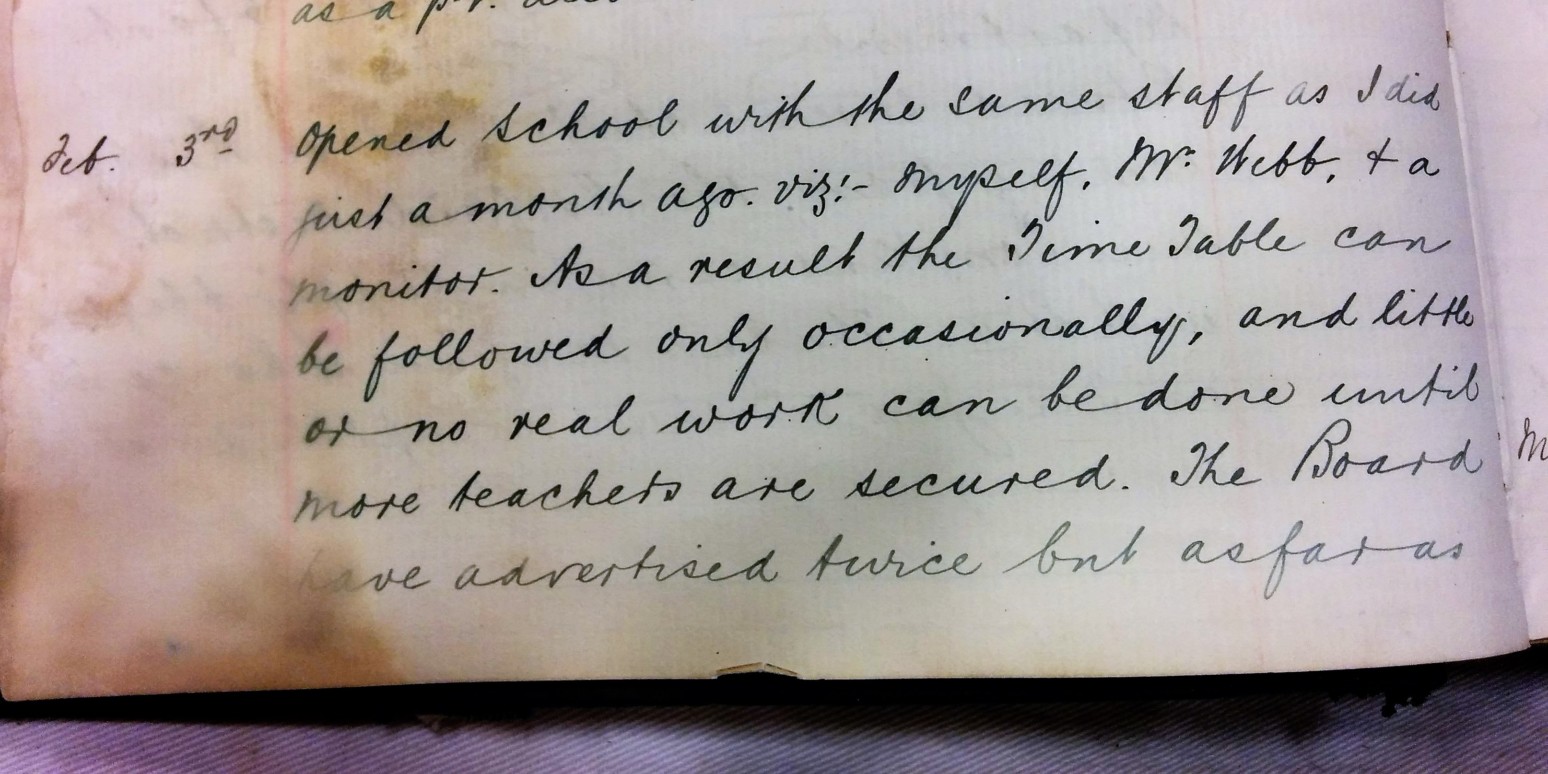 as a
Feb. 3rd Opened school with the same staff as I did
just a month ago. viz:- myself, Mr. Webb, & a
monitor. As a result the Time Table can
be followed only occasionally, and little
or no real work can be done until
more teachers are secured. The Board
have advertised twice but as far as